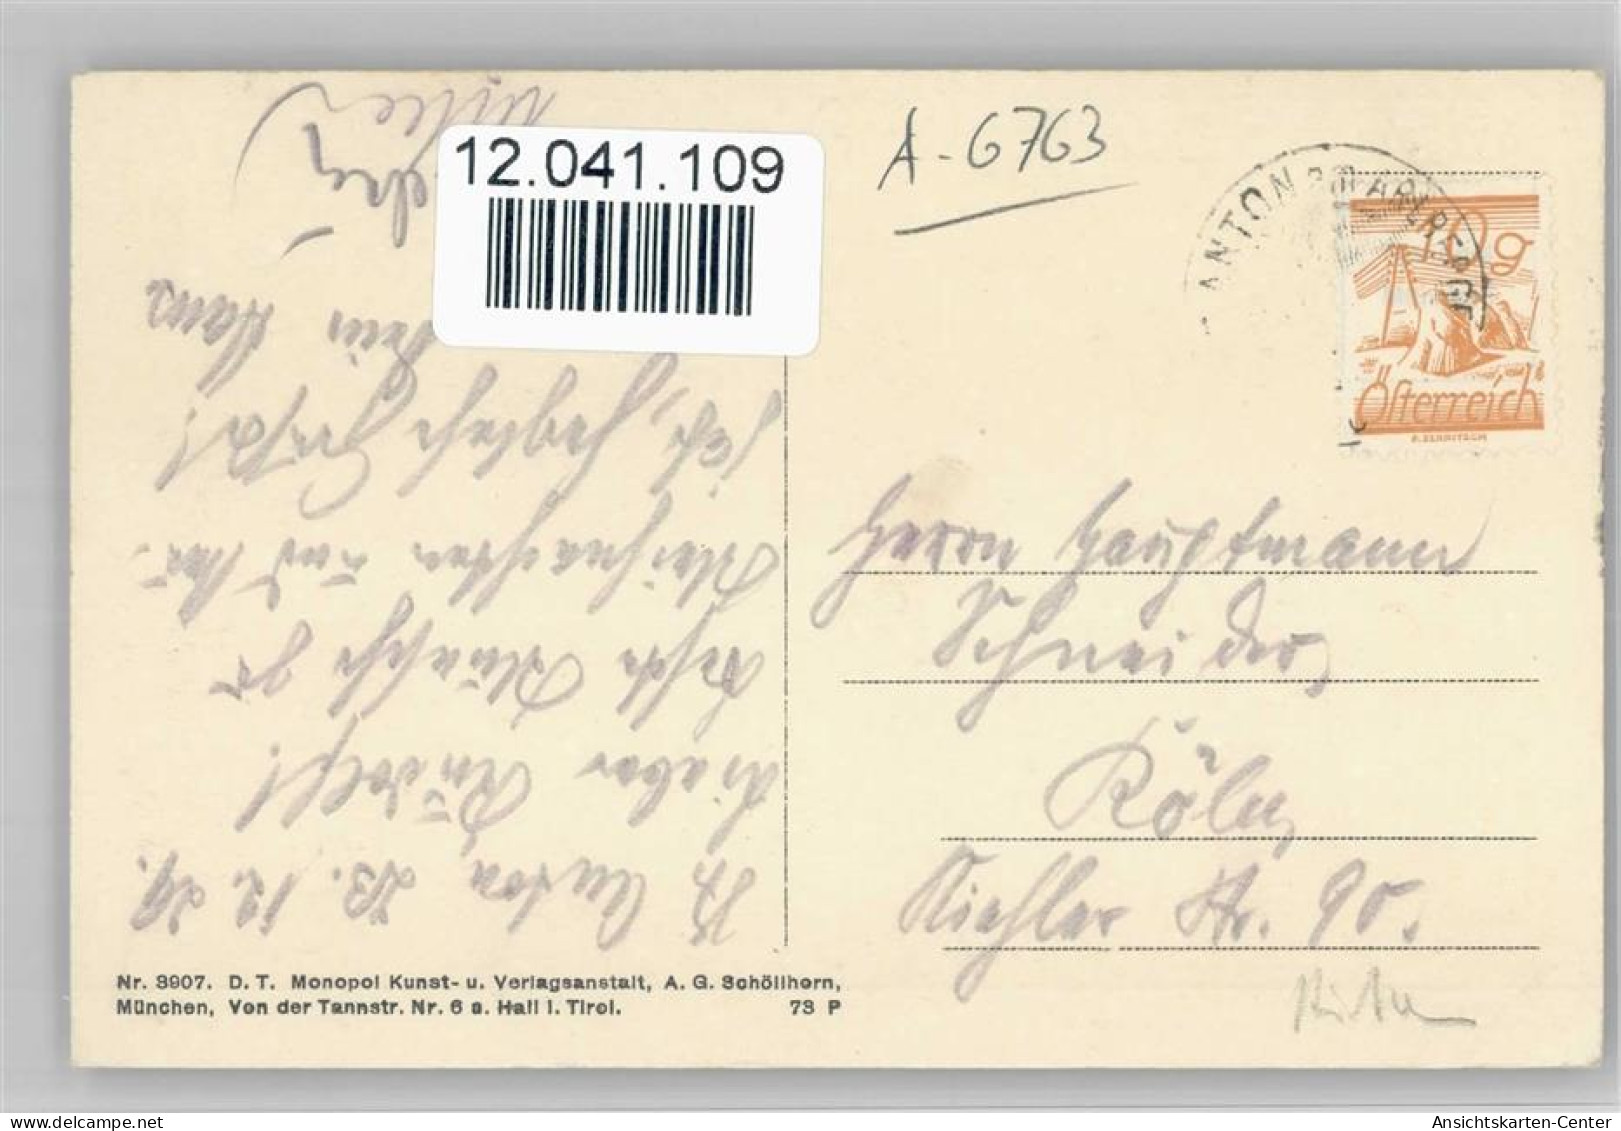 12.041.109
A-6763
ANTON a. ARLBERG
10g
Österreich
Herrn Hauptmann
Schneider
Köln
Str. 90.
St. Anton, 23. 12. 29.
Lieber Rudolf!
Beste Wünsche zu
Weihnachten und Neu-
jahr, herzliche Grüße!
Dein Hans
Nr. 3907. D. T. Monopol Kunst- u. Verlagsanstalt, A. G. Schöllhorn,
München, Von der Tannstr. Nr. 6 a. Hall i. Tirol. 73 P
Ansichtskarten-Center